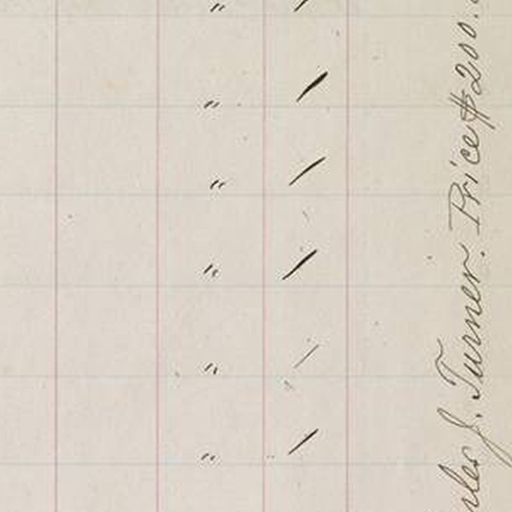 "
"
"
"
"
"
J. Turner. Price $200.